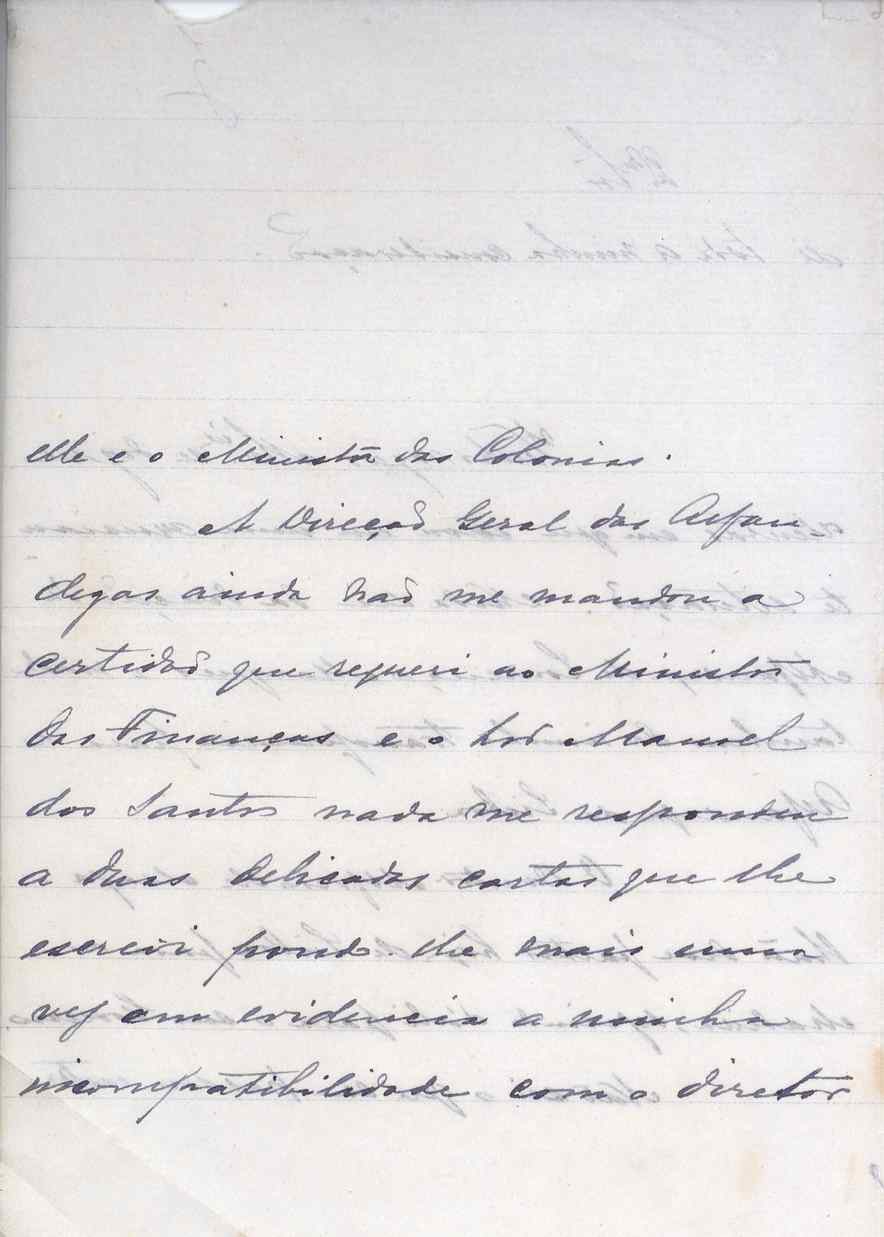 elle e o Ministro das Colonias.
A Direcção Geral das Alfan
degas ainda não me mandou a
certidão que requeri ao Ministro
das Finanças e o Snr Manoel
dos Santos nada me respondeu
a duas delicadas cartas que lhe
escrevi pondo-lhe mais uma
vez em evidencia a minha
incompatibilidade com o diretor